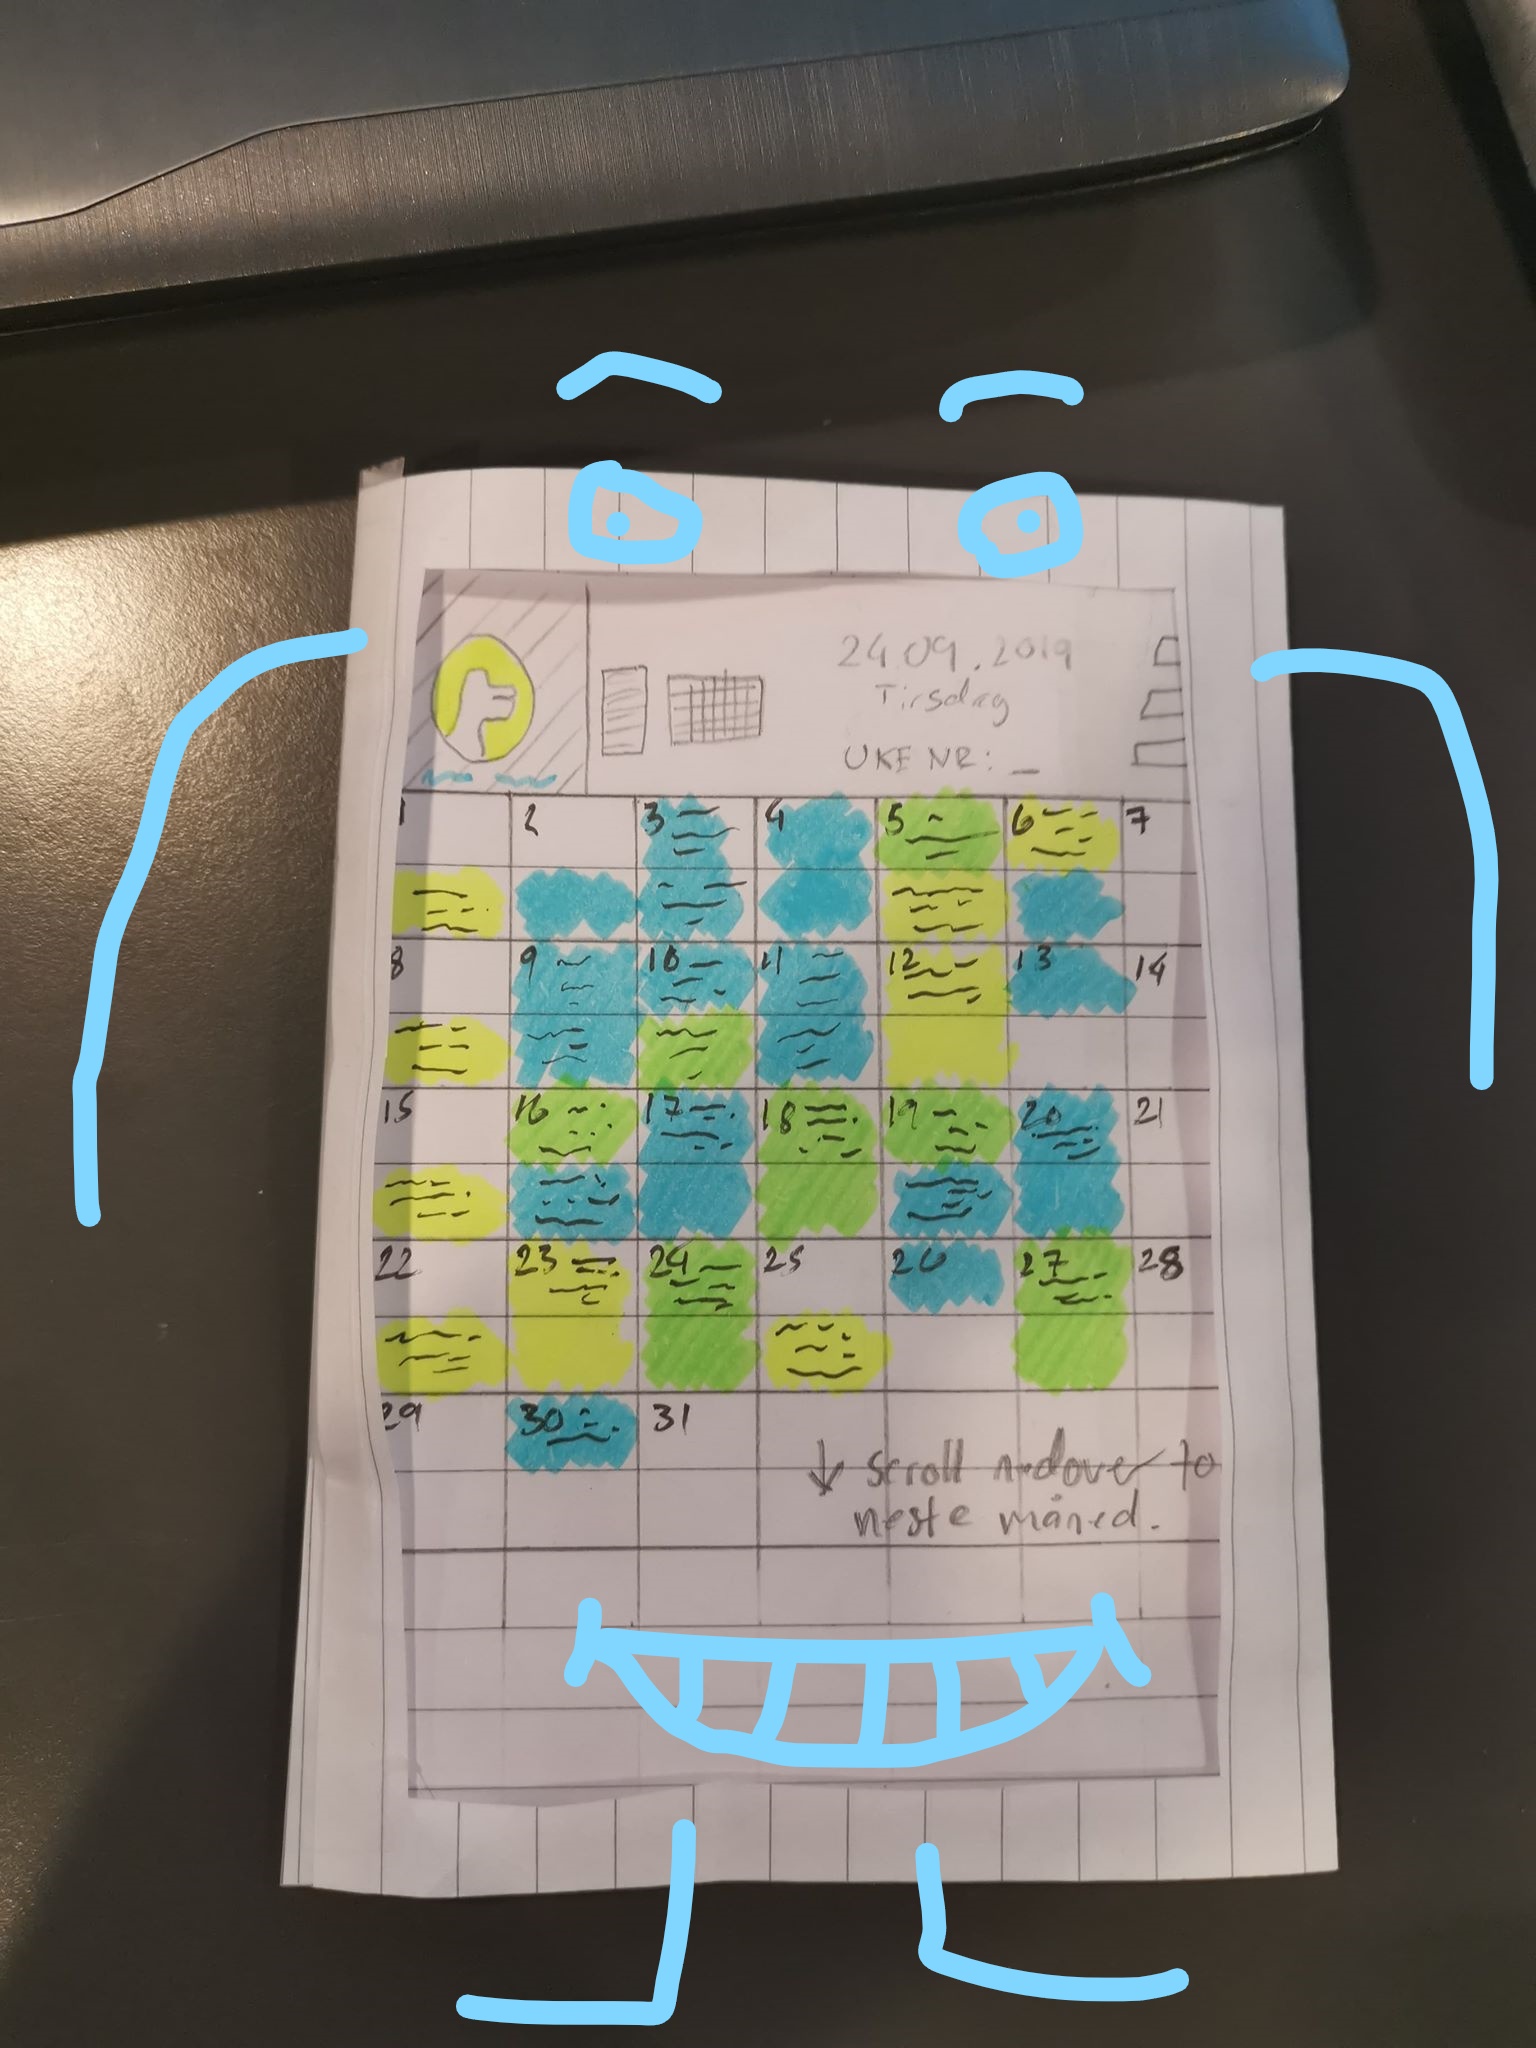 24.09.2019
Tirsdag
UKE NR: _
1 2 3 4 5 6 7
8 9 10 11 12 13 14
15 16 17 18 19 20 21
22 23 24 25 26 27 28
29 30 31
↓ scroll nedover to
neste måned.